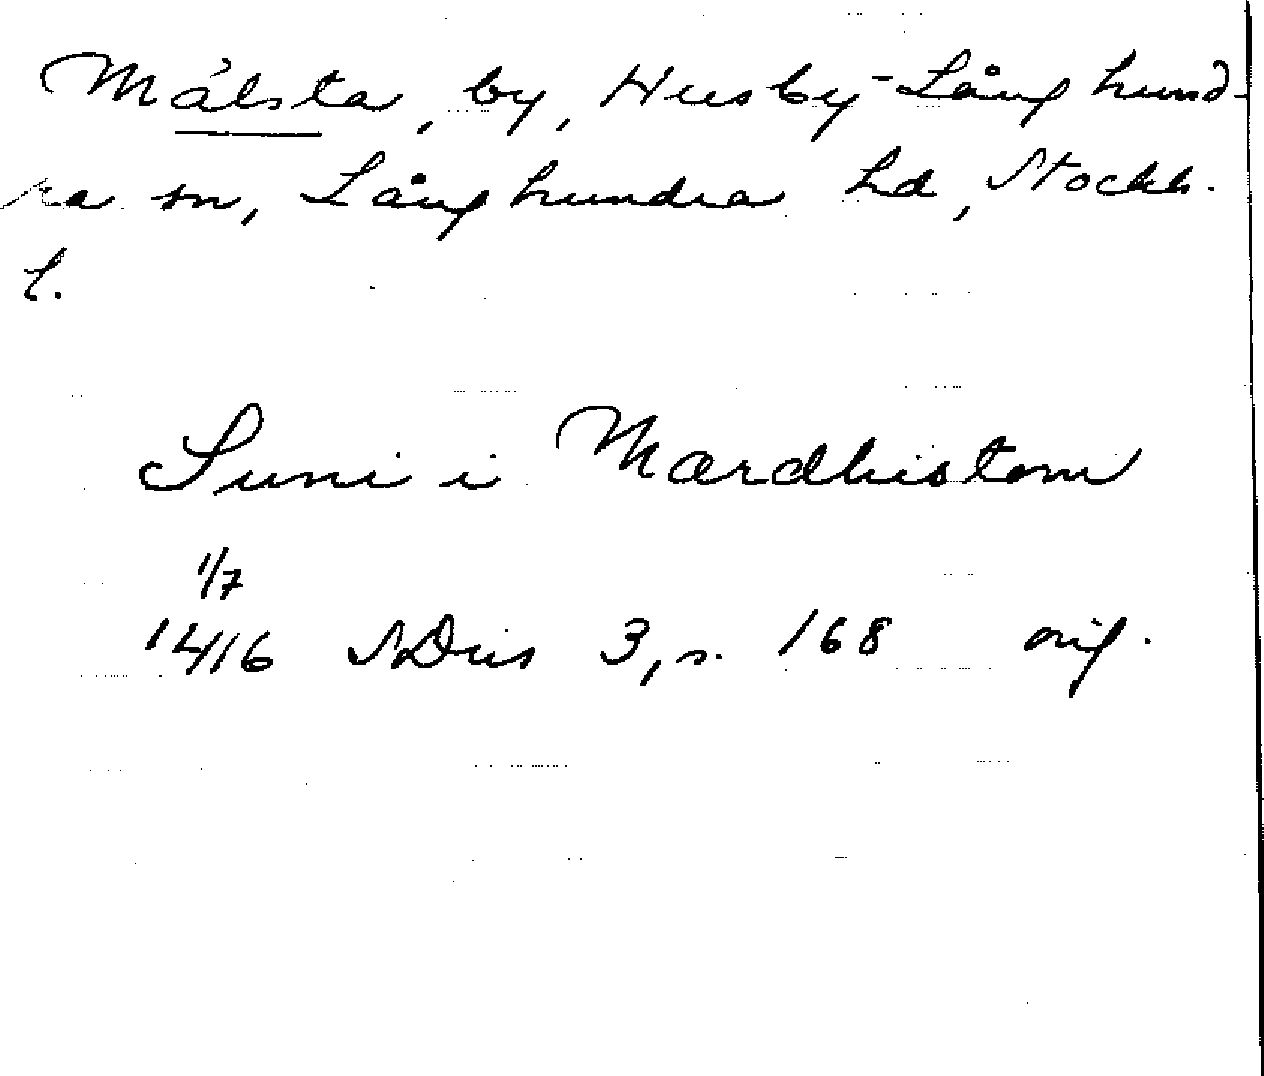 Målsta, by, Husby-Långhund-
ra sn, Långhundra hd, Stockh.
l.
Suni i Mardhistom
1/7
1416 SDns 3, s. 168 orig.